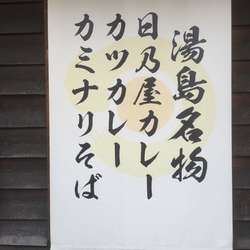 湯島名物
日乃屋カレー
カツカレー
カミナリそば